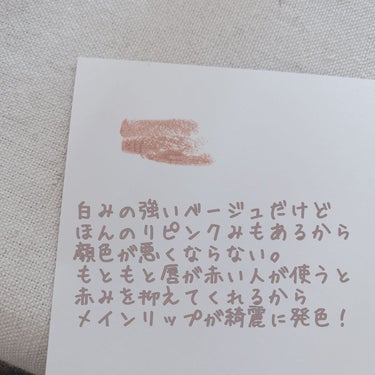 白みの強いベージュだけど
ほんのりピンクみもあるから
顔色が悪くならない。
もともと唇が赤い人が使うと
赤みを抑えてくれるから
メインリップが綺麗に発色!